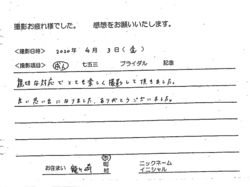 撮影お疲れ様でした。 感想をお願いいたします。
<撮影日時> 2020年 4月 3日(金)
<撮影項目> 七五三 ブライダル 記念
親切な対応でとても楽しく撮影して頂きました。
良い思い出になりました。ありがとうございました。
お住まい 市 町 村 ニックネーム イニシャル